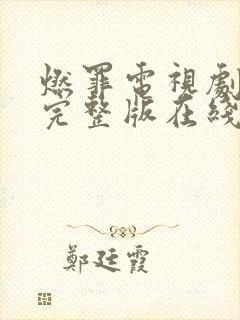 燃罪電視劇
完整版在綫
鄭廷霞